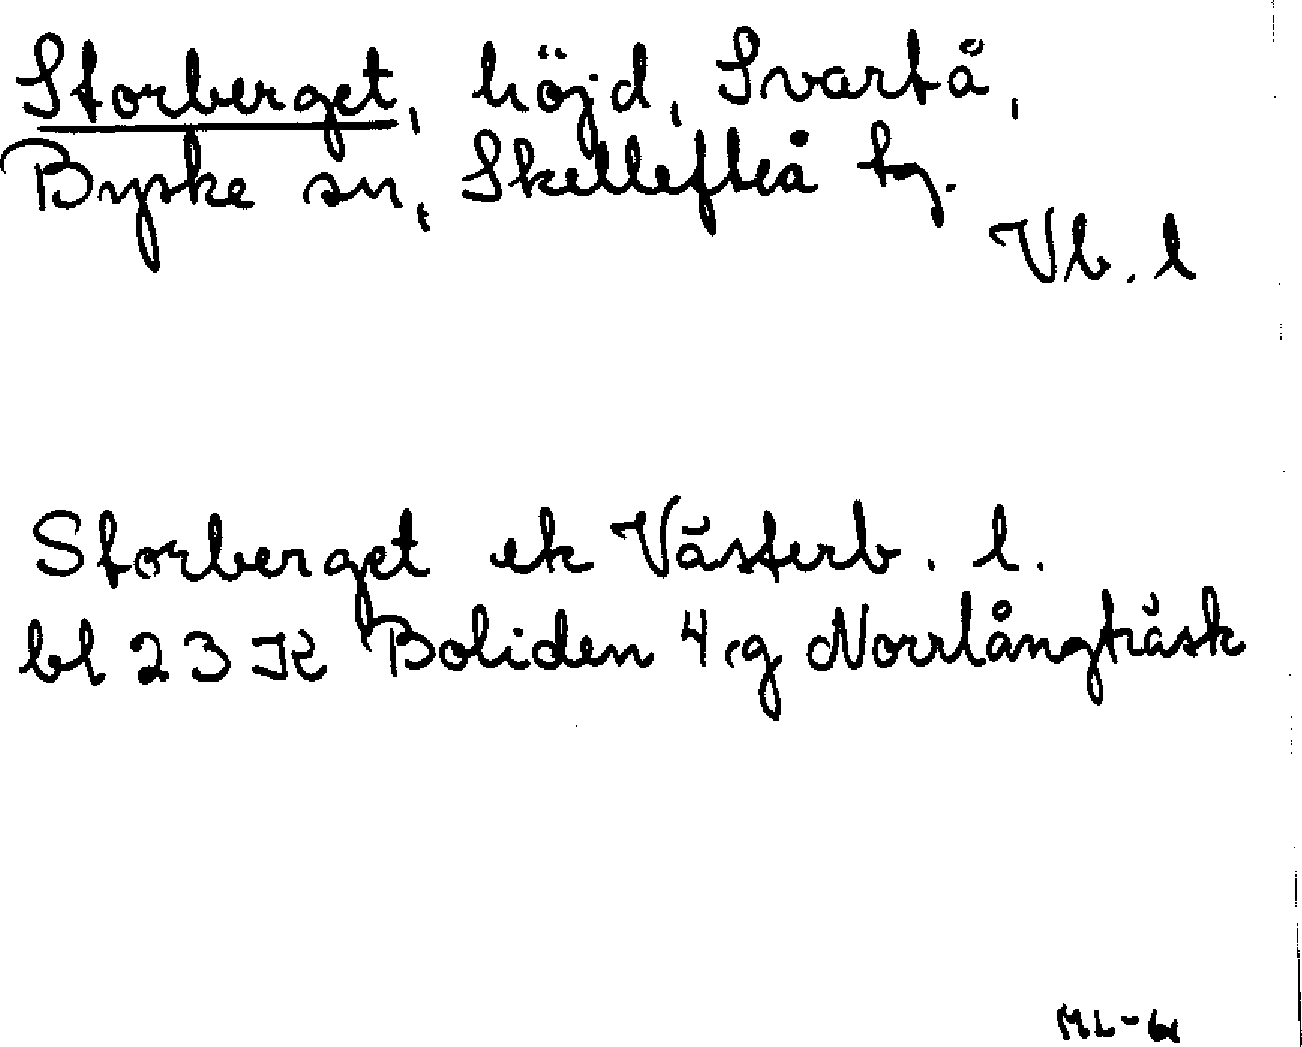 Storberget, höjd, Svartå,
Byske sn, Skellefteå tg.
Vb. l
Storberget ek Västerb. l.
bl 23 K Boliden 4 g Norrlångträsk